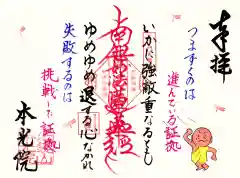 奉拝
つまずくのは
進んでいる証拠
いかに強敵重なるとも
南無妙法蓮華経
ゆめゆめ退する心なかれ
失敗するのは
挑戦した証拠
本光院